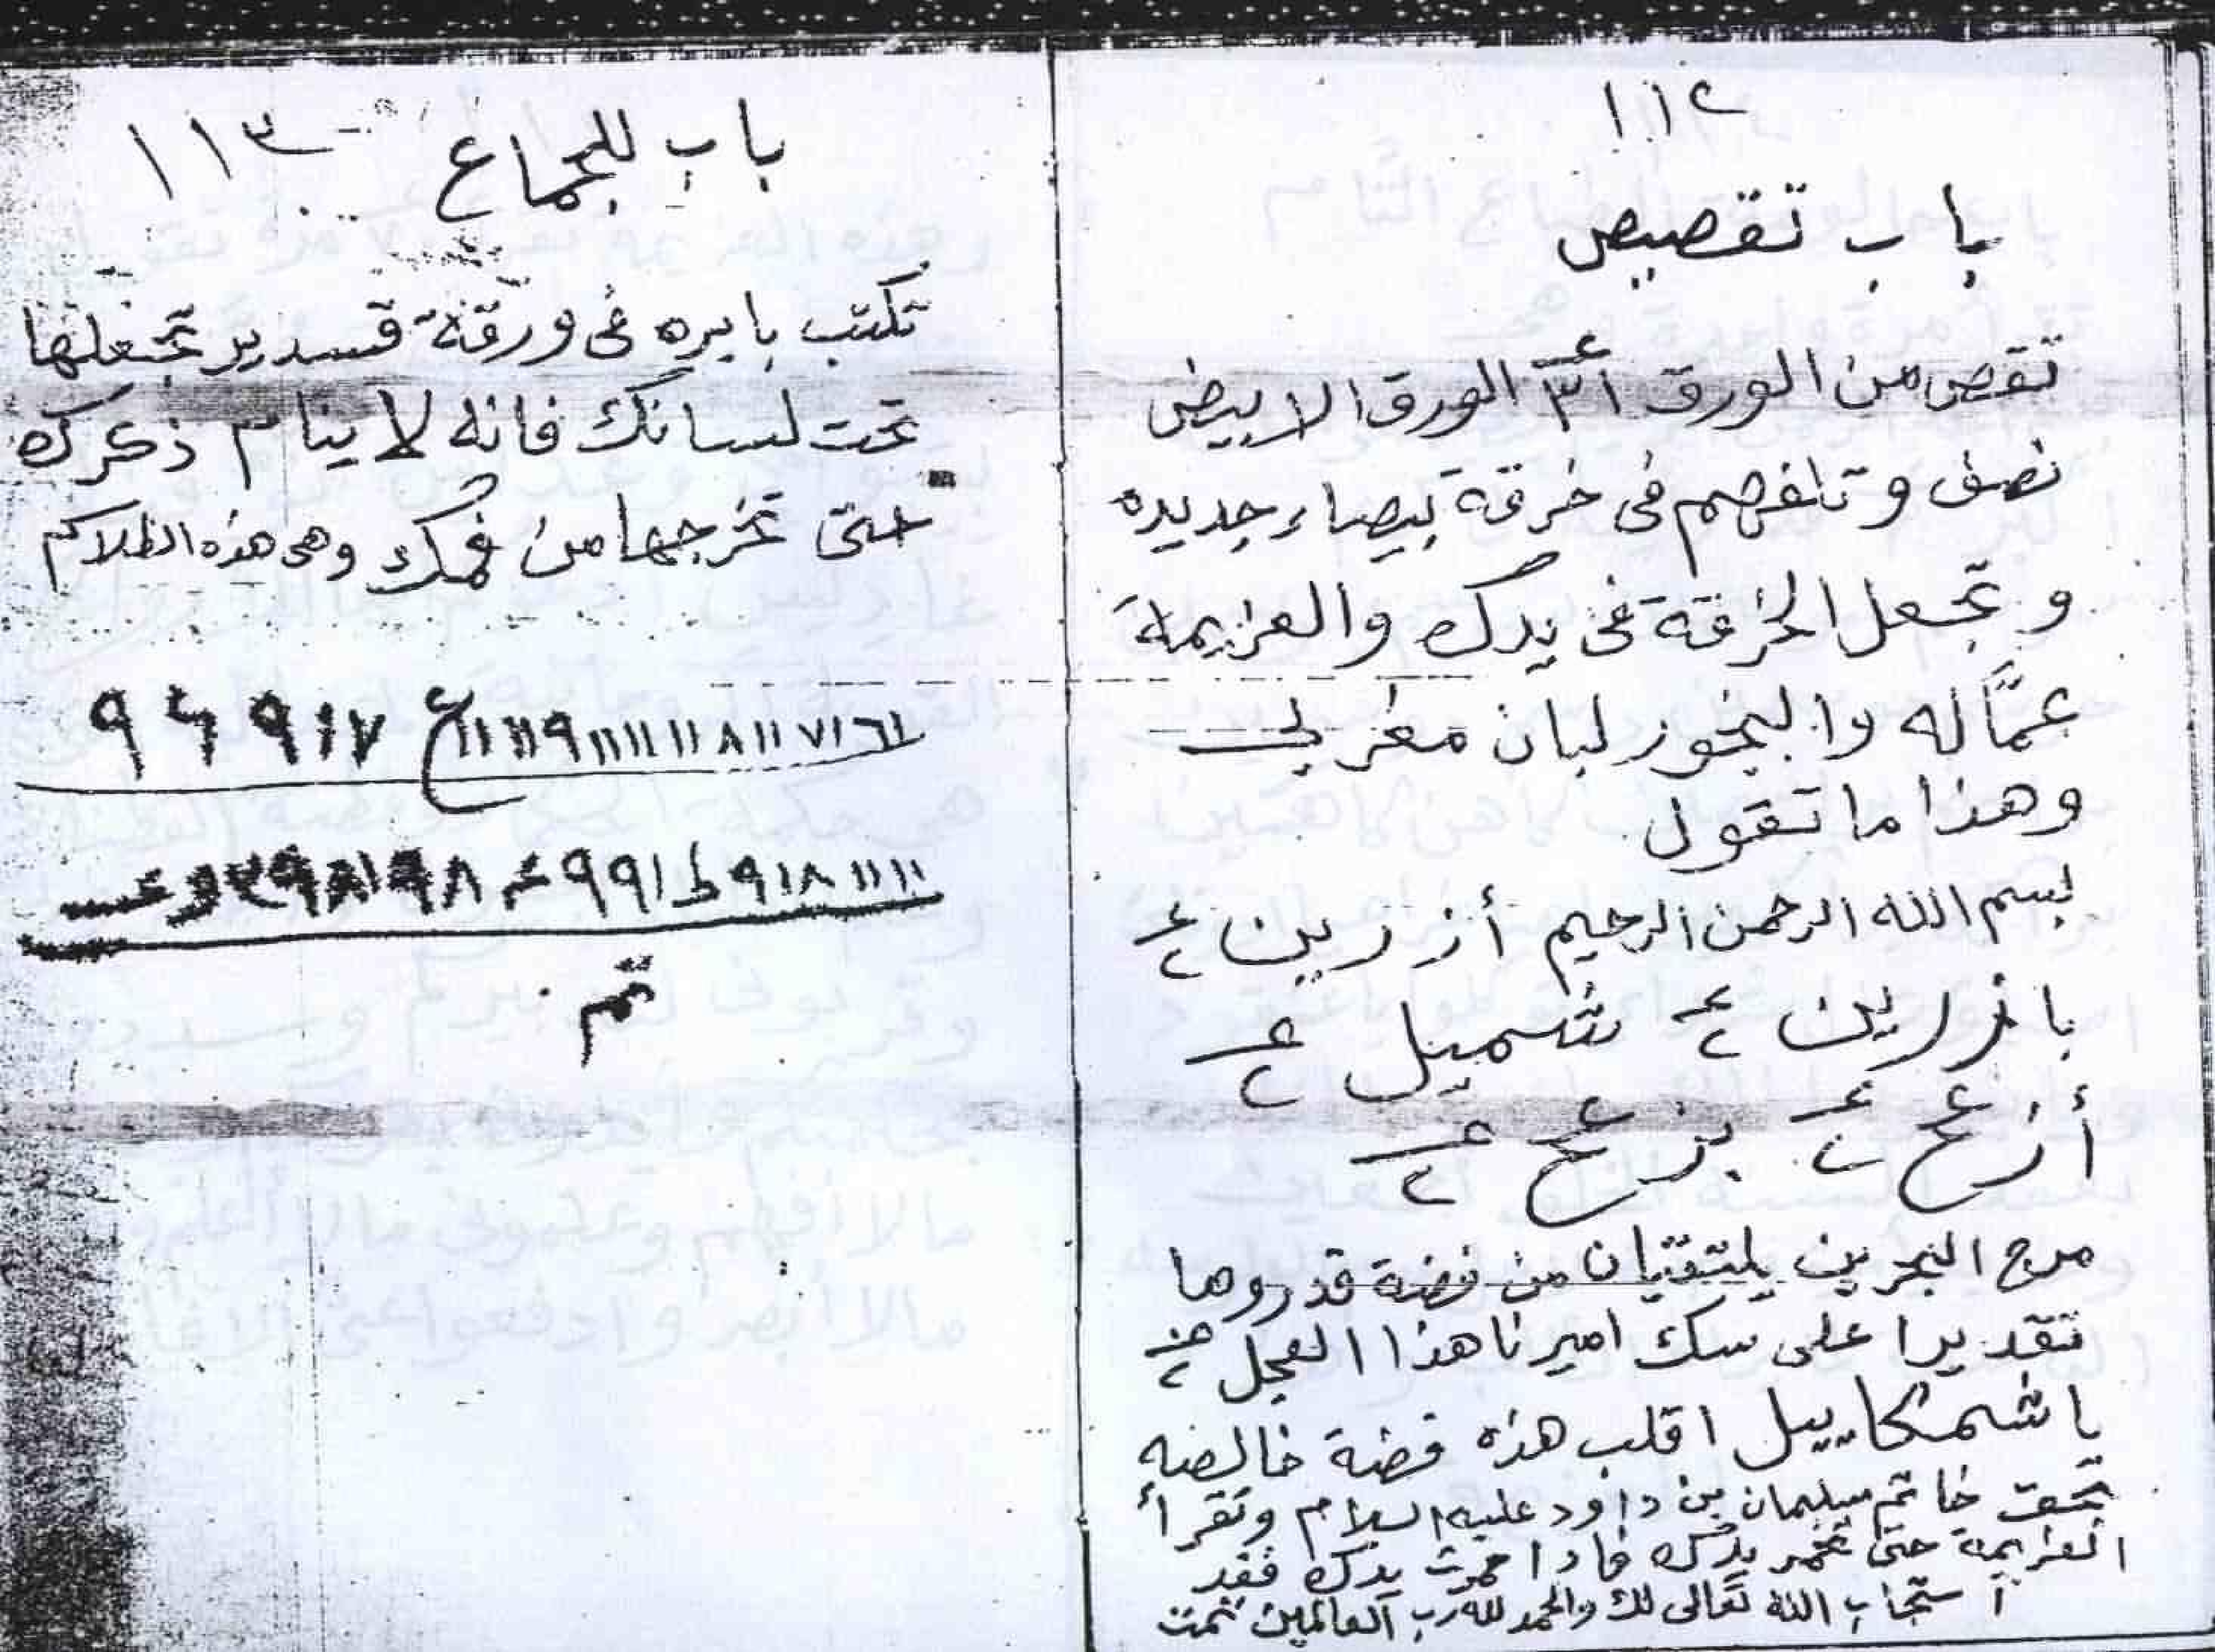 ١١٢
باب تقصيص
تقص من الورق الورق الابيض
نصف وتلفهم فى خرقة بيضاء جديده
وتجعل الخرقة فى يدك والعزيمة
عمّاله والبخور لبان مغربى
وهذا ما تقول
بسم الله الرحمن الرحيم أزرين ع٢
بازرين ع٢ شميل ع٢
أزع ع٢ بزع ع٢
مرج البحرين يلتقيان من فضة قدروها
تقديرا على سك اميرنا هذا العجل ع٢
يا شمخاييل اقلب هذه فضة خالصه
بحق خاتم سليمان بن داود عليه السلام وتقرأ
العزيمة حتى تحمر يدك فاذا احمرت يدك فقد
استجاب الله تعالى لك والحمد لله رب العالمين تمت
باب للجماع ١١٣
تكتب بابره فى ورقة قسدير تجعلها
تحت لسانك فانه لا ينام ذكرك
حتى تخرجها من فمك وهى هذه الطلاسم
تم